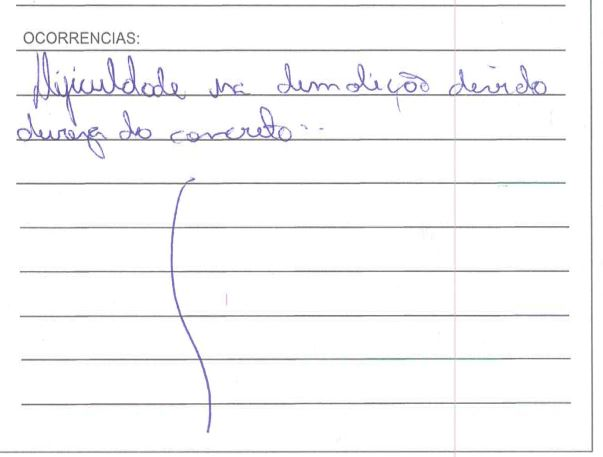 OCORRENCIAS:
Dificuldade na demolição devido
dureza do concreto..